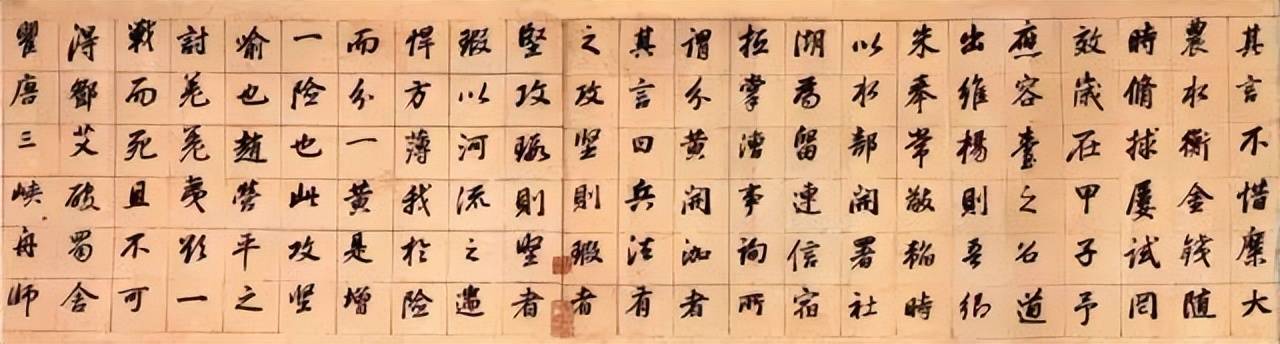 其言不惜糜大
農水衡金錢随
時脩捄屢試罔
效歲在甲子予
應容臺之召道
出維楊則吾鄉
朱奉常敬韜時
以水部開署社
湖為留連信宿
抵掌漕事詢所
謂分黄開泇者
其言曰兵法有
之攻堅則瑕者
堅攻瑕則堅者
瑕以河流之遄
悍方薄我於險
而分一黄是增
一險也此攻堅
喻也趙營平之
討羌羌夷欲一
戰而死且不可
得鄧艾破蜀舍
瞿唐三峡舟師